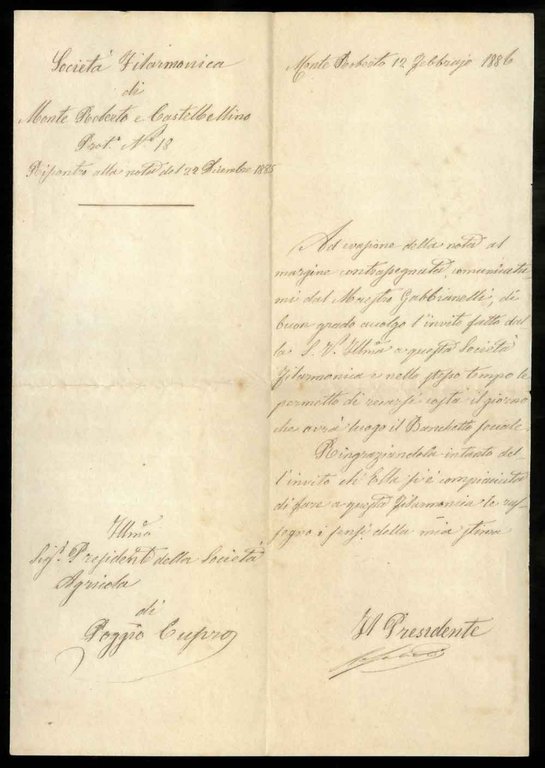 Società Filarmonica
di
Monte Roberto e Castelbellino
Prot.o N.o 18
Risposta alla nota del 22 Dicembre 1885
Monte Roberto 12 Febbrajo 1886
Ad evasione della nota al
margine contrassegnata, comunicata
mi dal Maestro Gabbianelli, di
buon grado accolgo l'invito fatto dal
la S. V. Ill͞ma a questa Società
Filarmonica e nello stesso tempo le
permetto di recarsi costà il giorno
che avrà luogo il Banchetto sociale.
Ringraziandola intanto del
l'invito ch'Ella si è compiaciuta
di fare a questa Filarmonica le ras-
segno i sensi della mia stima
Ill͞mo
Sig.r Presidente della Società
Agricola
di
Poggio Cupro
Il Presidente